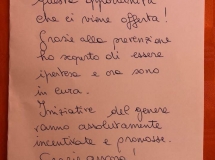 questa opportunità
che ci viene offerta!
Grazie alla prevenzione
ho scoperto di essere
ipertesa e ora sono
in cura.
Iniziative del genere
vanno assolutamente
incentivate e promosse.
Grazie ancora!